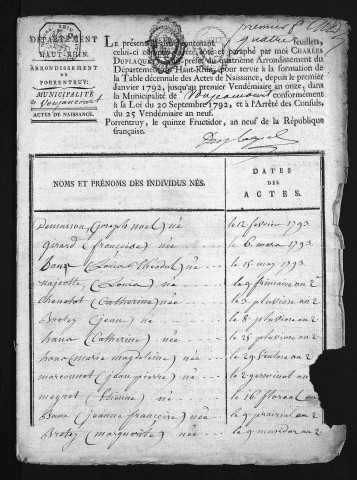 premier
DÉPARTEMENT
DU
HAUT-RHIN.
ARRONDISSEMENT
DE
PORRENTRUY.
MUNICIPALITÉ
de Voujeaucourt
ACTES DE NAISSANCE.
LE présent contenant quatre feuillets,
celui-ci compris, a été coté et paraphé par moi CHARLES
DUPLAQUET sous-préfet du quatrième Arrondissement du
Département du Haut-Rhin, pour servir à la formation de
la Table décennale des Actes de Naissance, depuis le premier
Janvier 1792, jusqu'au premier Vendémiaire an onze, dans
la Municipalité de Voujeaucourt conformément
à la Loi du 20 Septembre 1792, et à l'Arrêté des Consuls,
du 25 Vendémiaire an neuf.
Porrentruy, le quinze Fructidor, an neuf de la République
française.
Duplaquet
NOMS ET PRÉNOMS DES INDIVIDUS NÉS.
DATES
DES
ACTES.
(joseph noel) né le 12 fevrier 1793
girard (françoise) née le 6 mars 1793
Baux (Louis) né le 15 may 1793
(Louise) née le 9 frimaire an 2
(Catherine) née le 3 pluviose an 2
Bretey (jean) né le 8 pluviose an 2
hana (Catherine) née le 25 pluviose an 2
hana (marie magdeleine) née le 29 ventose an 2
marconnot (jean pierre) né le 2 germinal an 2
megret (Etienne) né le 16 floreal an 2
Baux (jeanne françoise) née le 9 prairial an 2
Bretey (marguerite) née le 9 messidor an 2